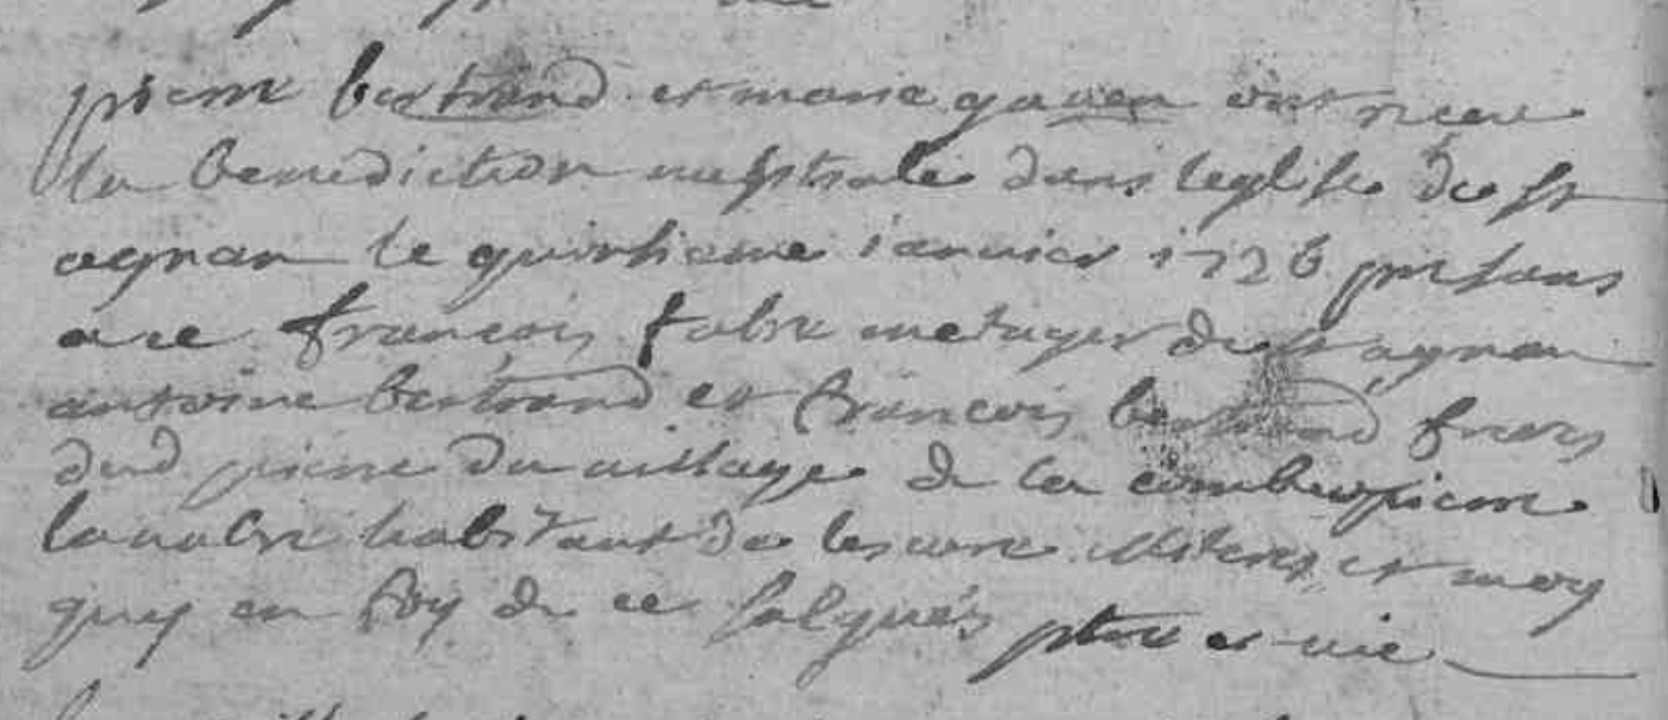 pierre bertrand et marie gauven ont receu
la benediction nuptiale dans leglise de st
agnan le quinsieme ianvier 1726 presans
a ce francois fabre metayer de st agnan
antoine bertrand et francois bertrand freres
dud pierre du village de la combe pierre
lavabre habitant de lescure illiteres et moy
quy en foy de ce Salgués ptre et vic